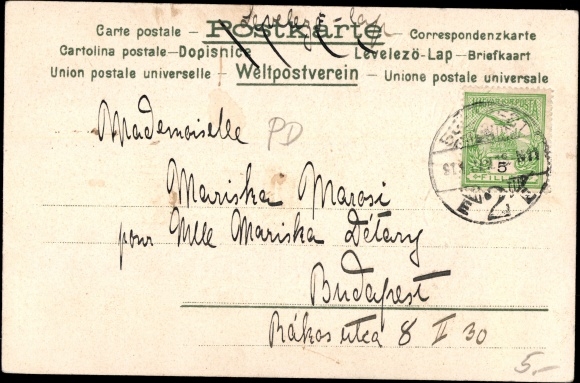 Levelező lap
Carte postale – Postkarte – Correspondenzkarte
Cartolina postale – Dopisnice Levelező-Lap – Briefkaart
Union postale universelle – Weltpostverein – Unione postale universale
Mademoiselle
PD
Mariska Marosi
pour Mlle Mariska Détary
Budapest
Rákos utca 8 II 30
5
FILLÉR
5.-